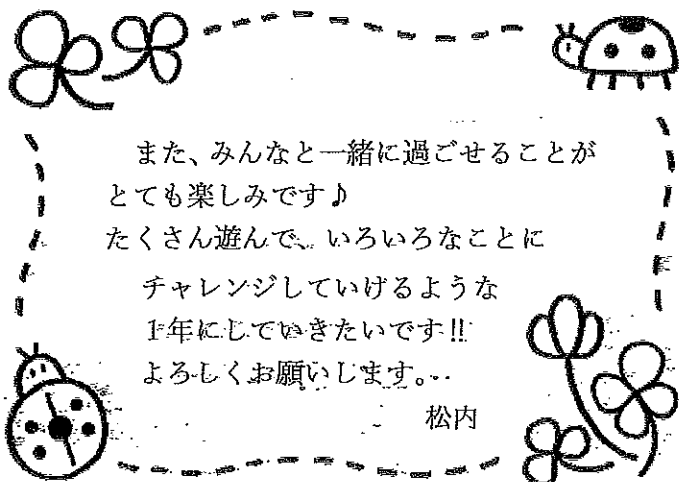 また、みんなと一緒に過ごせることが
とても楽しみです♪
たくさん遊んで、いろいろなことに
チャレンジしていけるような
1年にしていきたいです!!
よろしくお願いします。
松内